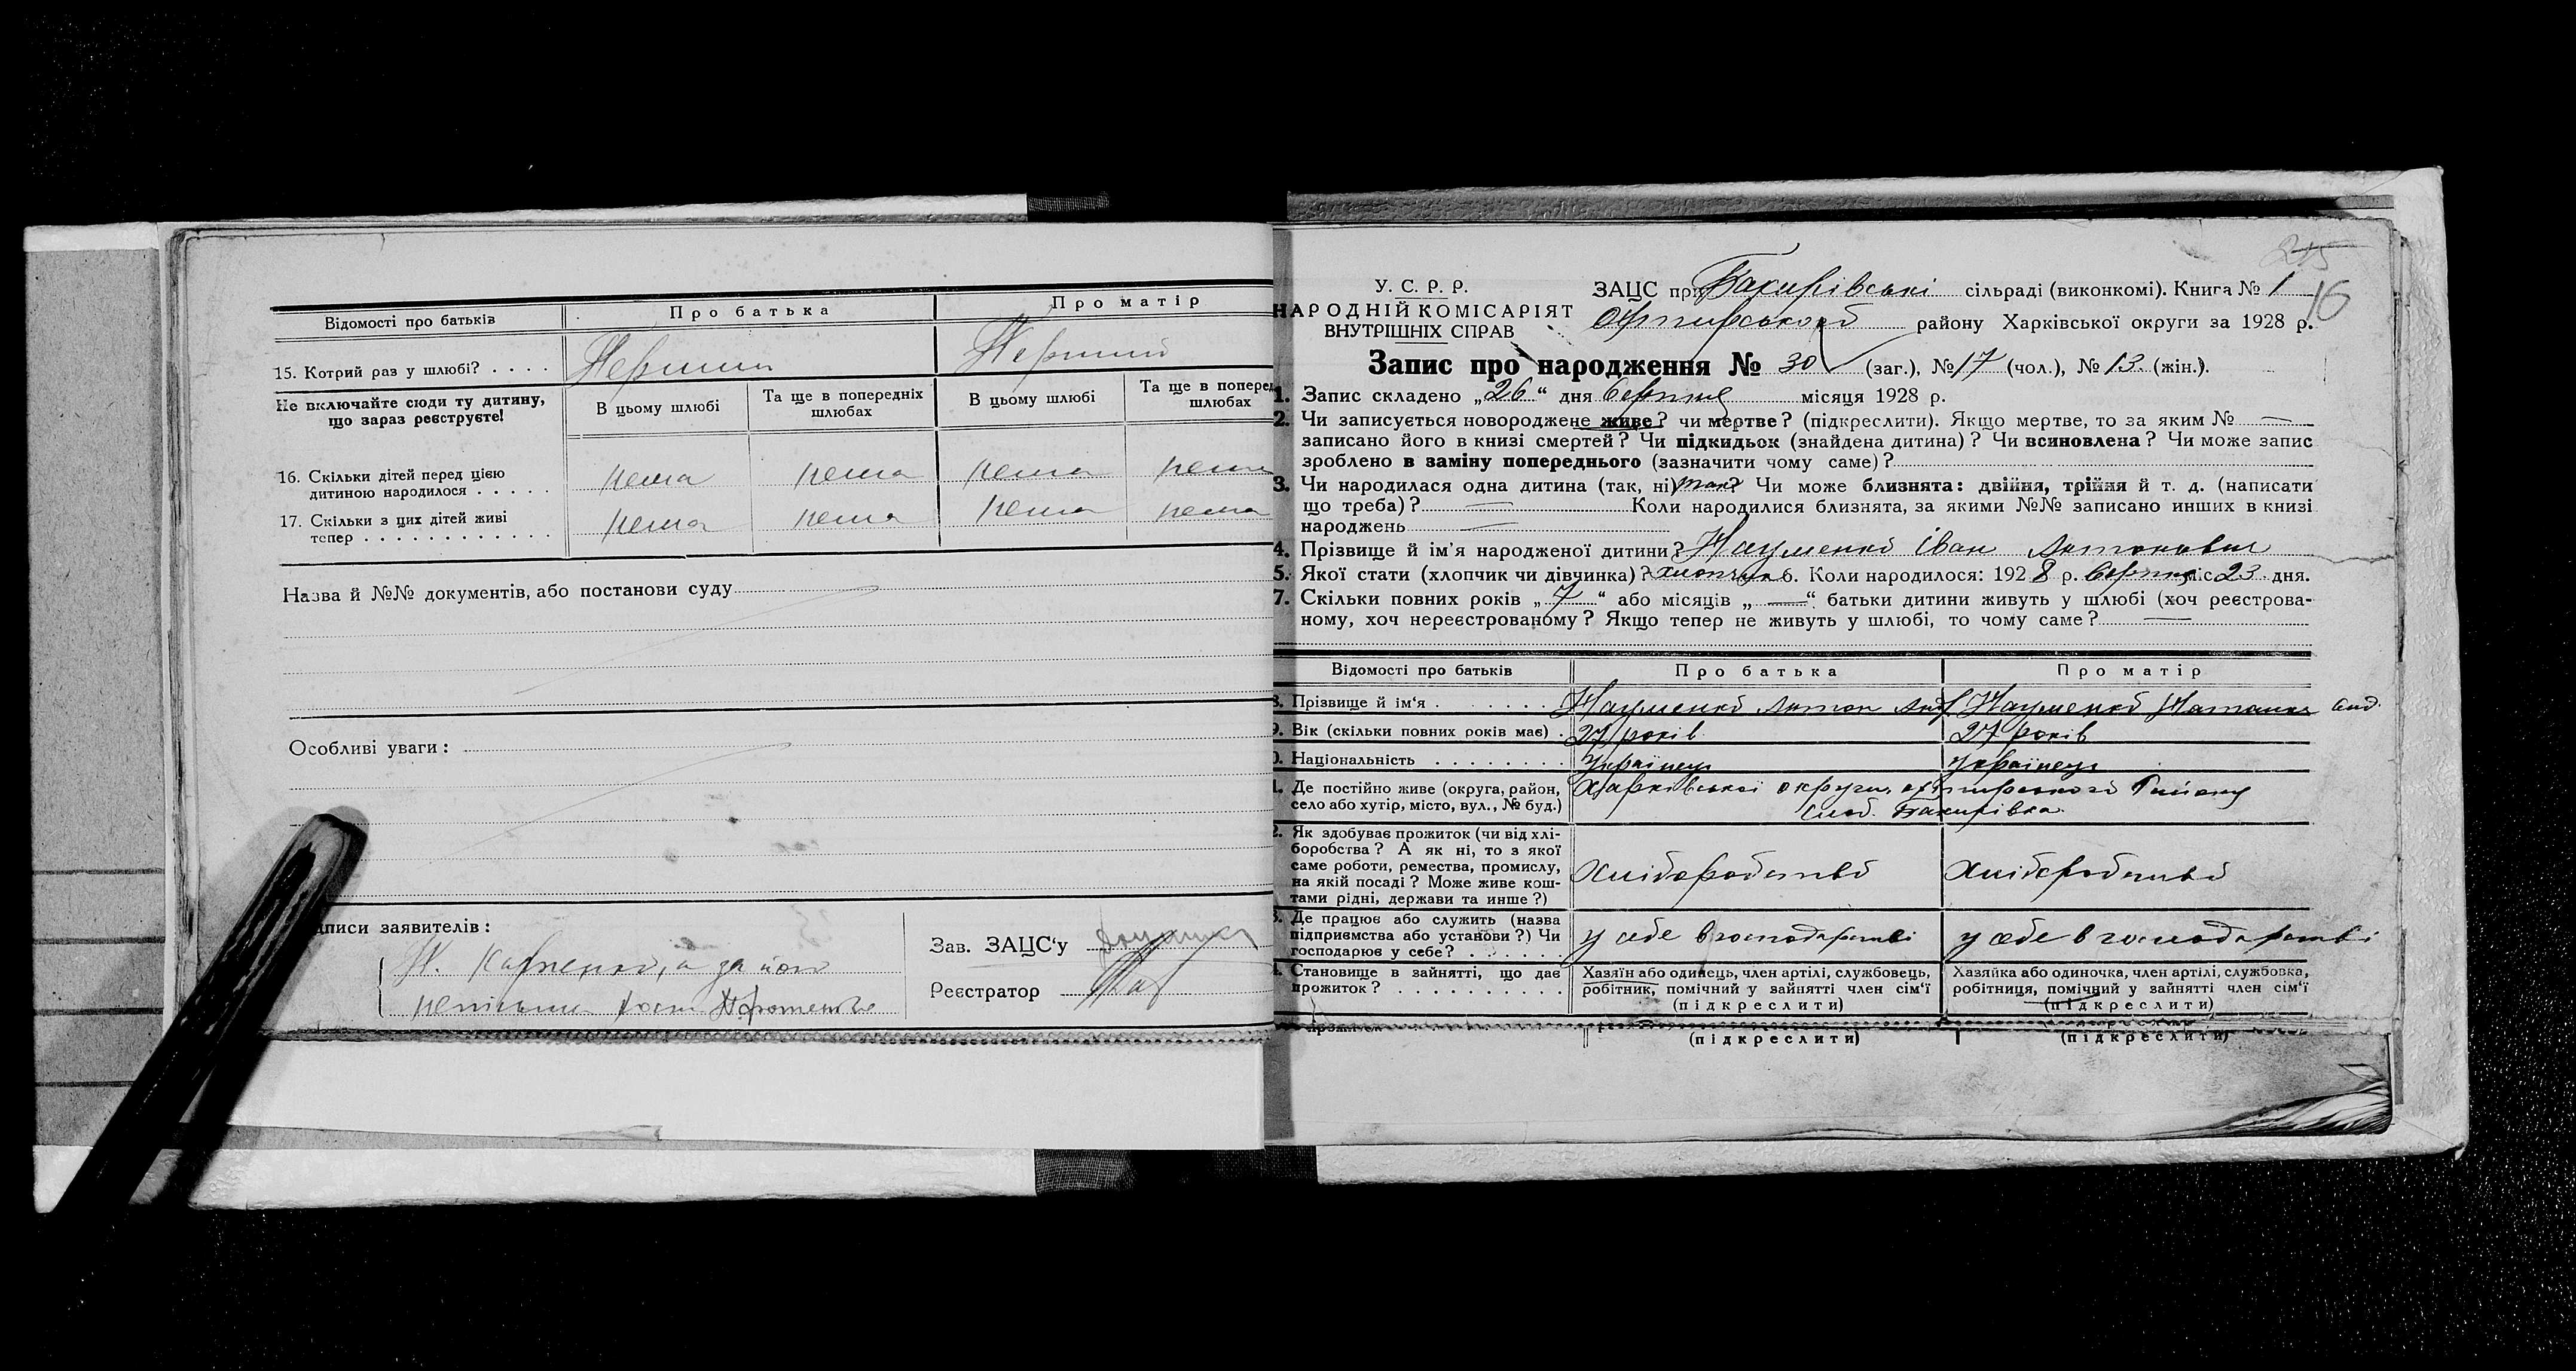 Відомості про батьків
Про батька
Про матір
15. Котрий раз у шлюбі? . . . .
Перший
Перший
Не включайте сюди ту дитину,
що зараз реєструєте!
В цьому шлюбі
Та ще в попередніх
шлюбах
В цьому шлюбі
Та ще в поперед
шлюбах
16. Скільки дітей перед цією
дитиною народилося . . . . .
нема нема нема нема
17. Скільки з цих дітей живі
тепер . . . . . . . . . . . .
нема нема нема нема
Назва й №№ документів, або постанови суду
Особливі уваги:
писи заявителів:
Н. а за його
Зав. ЗАЦС'у
Реєстратор
215
16
У. С. Р. Р.
НАРОДНІЙ КОМІСАРІЯТ
ВНУТРІШНІХ СПРАВ
ЗАЦС при Бакирівські сільраді (виконкомі). Книга № 1
Охтирського району Харківської округи за 1928 р.
Запис про народження № 30 (заг.), № 17 (чол.), № 13. (жін.).
1. Запис складено „26“ дня Серпня місяця 1928 р.
2. Чи записується новороджене живе? чи мертве? (підкреслити). Якщо мертве, то за яким № —
записано його в книзі смертей? Чи підкидьок (знайдена дитина)? Чи всиновлена? Чи може запис
зроблено в заміну попереднього (зазначити чому саме)?
3. Чи народилася одна дитина (так, ні) так? Чи може близнята: двійня, трійня й т. д. (написати
що треба)? — Коли народилися близнята, за якими №№ записано инших в книзі
народжень —
4. Прізвище й ім'я народженої дитини? Науменко Іван Антонович
5. Якої стати (хлопчик чи дівчинка)? хлопчик 6. Коли народилося: 1928 р. Серпня міс 23 дня.
7. Скільки повних років „7“ або місяців „—“ батьки дитини живуть у шлюбі (хоч реєстрова-
ному, хоч нереєстрованому? Якщо тепер не живуть у шлюбі, то чому саме? —
Відомості про батьків
Про батька
Про матір
8. Прізвище й ім'я . . . . . . .
Науменко Антон Анд
Науменко Наталка
9. Вік (скільки повних років має) .
27 років
27 років
0. Національність . . . . . . . .
Українец
Українец
1. Де постійно живе (округа, район,
село або хутір, місто, вул., № буд.)
Харківської округи, охтирського Району
слоб. Бакирівка
2. Як здобуває прожиток (чи від хлі-
боробства? А як ні, то з якої
саме роботи, ремества, промислу,
на якій посаді? Може живе кош-
тами рідні, держави та инше?)
Хліборобство
Хліборобство
3. Де працює або служить (назва
підприємства або установи?) Чи
господарює у себе? . . . . . .
у себе в господарстві
у себе в господарстві
4. Становище в зайнятті, що дає
прожиток? . . . . . . . . . .
Хазяїн або одинець, член артілі, службовець,
робітник, помічний у зайнятті член сім'ї
(підкреслити)
Хазяйка або одиночка, член артілі, службовка,
робітниця, помічний у зайнятті член сім'ї
(підкреслити)
(підкреслити)
(підкреслити)